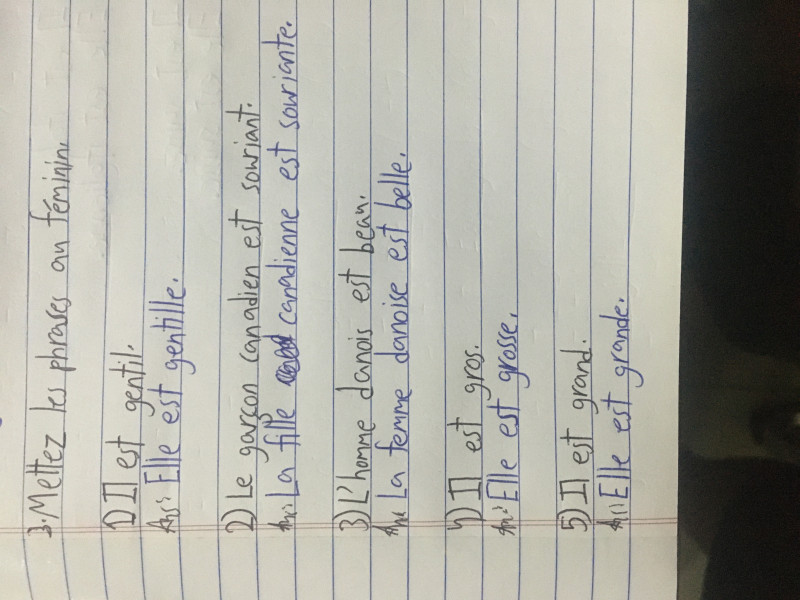 3. Mettez les phrases au féminin.
1) Il est gentil.
Ans: Elle est gentille.
2) Le garçon canadien est souriant.
Ans: La fille canadienne est souriante.
3) L'homme danois est beau.
Ans La femme danoise est belle.
4) Il est gros.
Ans: Elle est grosse.
5) Il est grand.
Ans: Elle est grande.